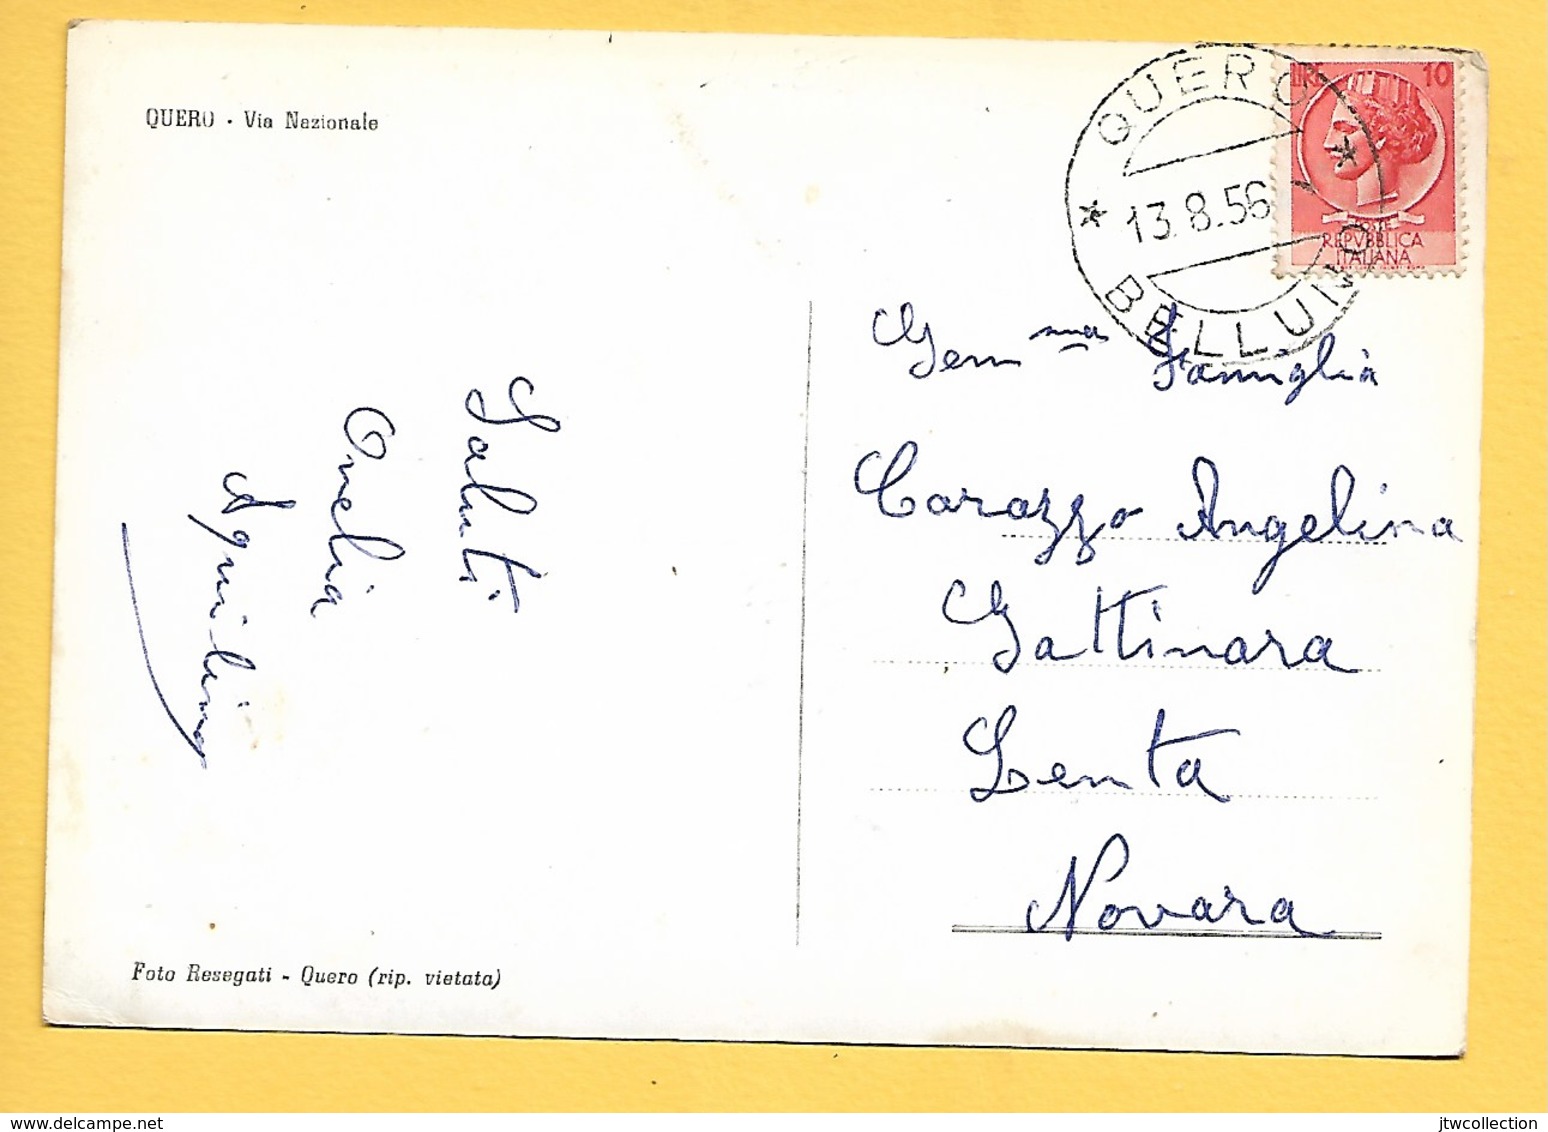 QUERO - Via Nazionale
QUERO
13.8.56
BELLUNO
LIRE 10
POSTE
REPVBBLICA
ITALIANA
Gem ma Famiglia
Carazzo Angelina
Gattinara
Lenta
Novara
Saluti
Onelia
Aquilino
Foto Resegati - Quero (rip. vietata)
www.delcampe.net
jtwcollection